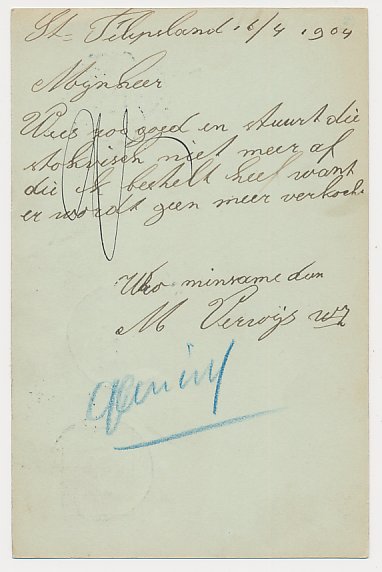 St= Filipsland 16/4 1904
Mijnheer
Wees zoo goed en stuurt die
stokvisch niet meer af
die ik bestelt heef want
er wordt geen meer verkocht
Uwe minsame dnr
M Verwijs wz